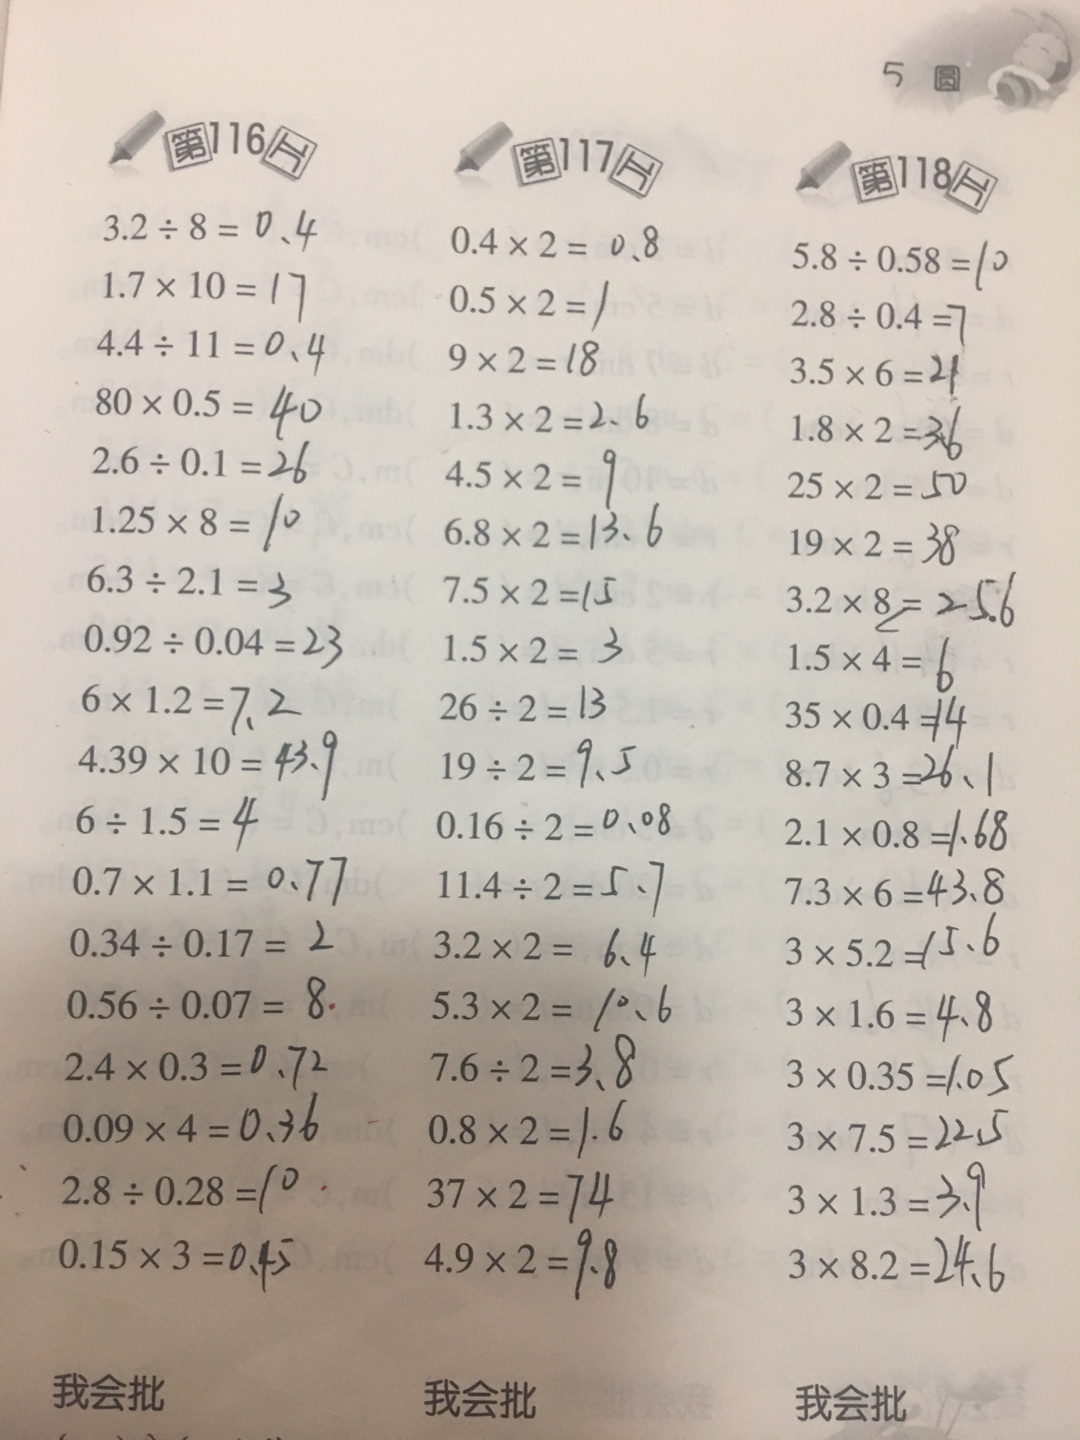 5 圆
第116天
3.2 ÷ 8 = 0.4
1.7 × 10 = 17
4.4 ÷ 11 = 0.4
80 × 0.5 = 40
2.6 ÷ 0.1 = 26
1.25 × 8 = 10
6.3 ÷ 2.1 = 3
0.92 ÷ 0.04 = 23
6 × 1.2 = 7.2
4.39 × 10 = 43.9
6 ÷ 1.5 = 4
0.7 × 1.1 = 0.77
0.34 ÷ 0.17 = 2
0.56 ÷ 0.07 = 8
2.4 × 0.3 = 0.72
0.09 × 4 = 0.36
2.8 ÷ 0.28 = 10
0.15 × 3 = 0.45
我会批
第117天
0.4 × 2 = 0.8
0.5 × 2 = 1
9 × 2 = 18
1.3 × 2 = 2.6
4.5 × 2 = 9
6.8 × 2 = 13.6
7.5 × 2 = 15
1.5 × 2 = 3
26 ÷ 2 = 13
19 ÷ 2 = 9.5
0.16 ÷ 2 = 0.08
11.4 ÷ 2 = 5.7
3.2 × 2 = 6.4
5.3 × 2 = 10.6
7.6 ÷ 2 = 3.8
0.8 × 2 = 1.6
37 × 2 = 74
4.9 × 2 = 9.8
我会批
第118天
5.8 ÷ 0.58 = 10
2.8 ÷ 0.4 = 7
3.5 × 6 = 21
1.8 × 2 = 3.6
25 × 2 = 50
19 × 2 = 38
3.2 × 8 = 25.6
1.5 × 4 = 6
35 × 0.4 = 14
8.7 × 3 = 26.1
2.1 × 0.8 = 1.68
7.3 × 6 = 43.8
3 × 5.2 = 15.6
3 × 1.6 = 4.8
3 × 0.35 = 1.05
3 × 7.5 = 22.5
3 × 1.3 = 3.9
3 × 8.2 = 24.6
我会批